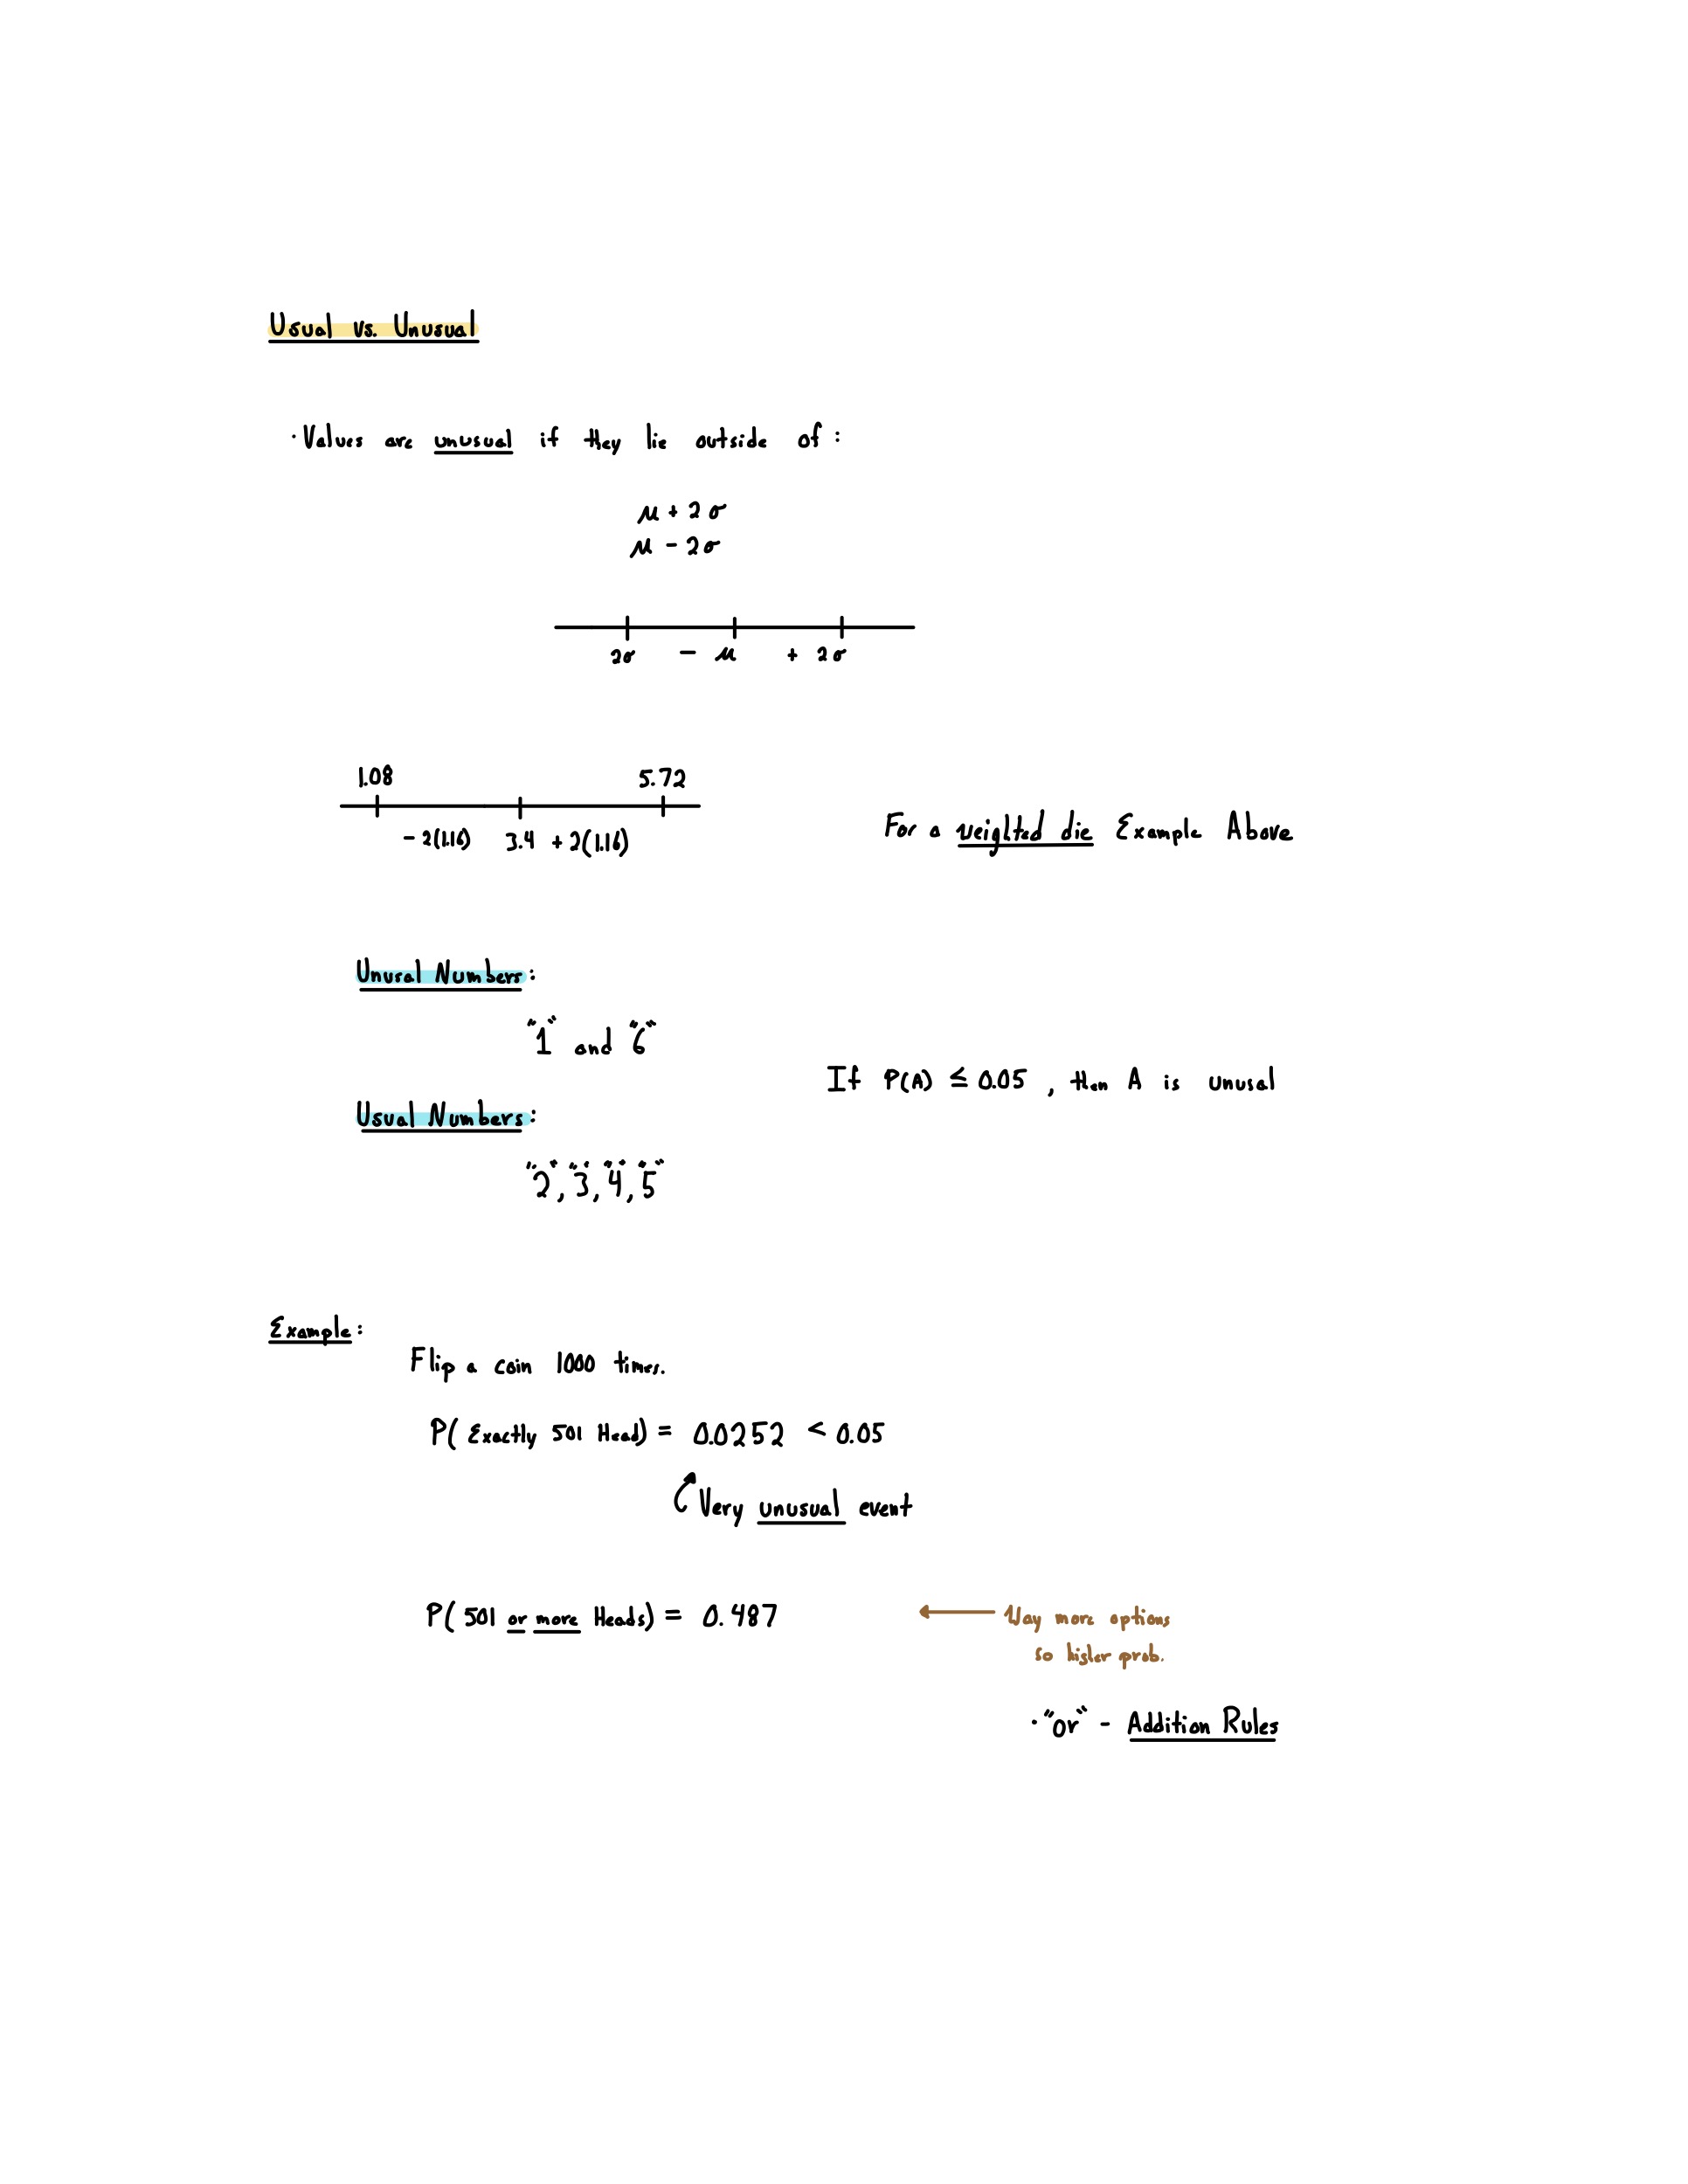 Usual vs. Unusual
· Values are unusual if they lie outside of :
μ + 2σ
μ - 2σ
2σ - μ + 2σ
1.08 5.72
- 2(1.16) 3.4 + 2(1.16)
For a weighted die Example Above
Unusal Numbers:
"1" and "6"
If P(A) ≤ 0.05 , then A is unusal
Usual Numbers:
"2", "3", "4", "5"
Example:
Flip a coin 1000 times.
P( Exactly 501 Head) = 0.0252 < 0.05
Very unusual event
P( 501 or more Heads) = 0.487
Way more options
so higher prob.
· "or" - Addition Rules